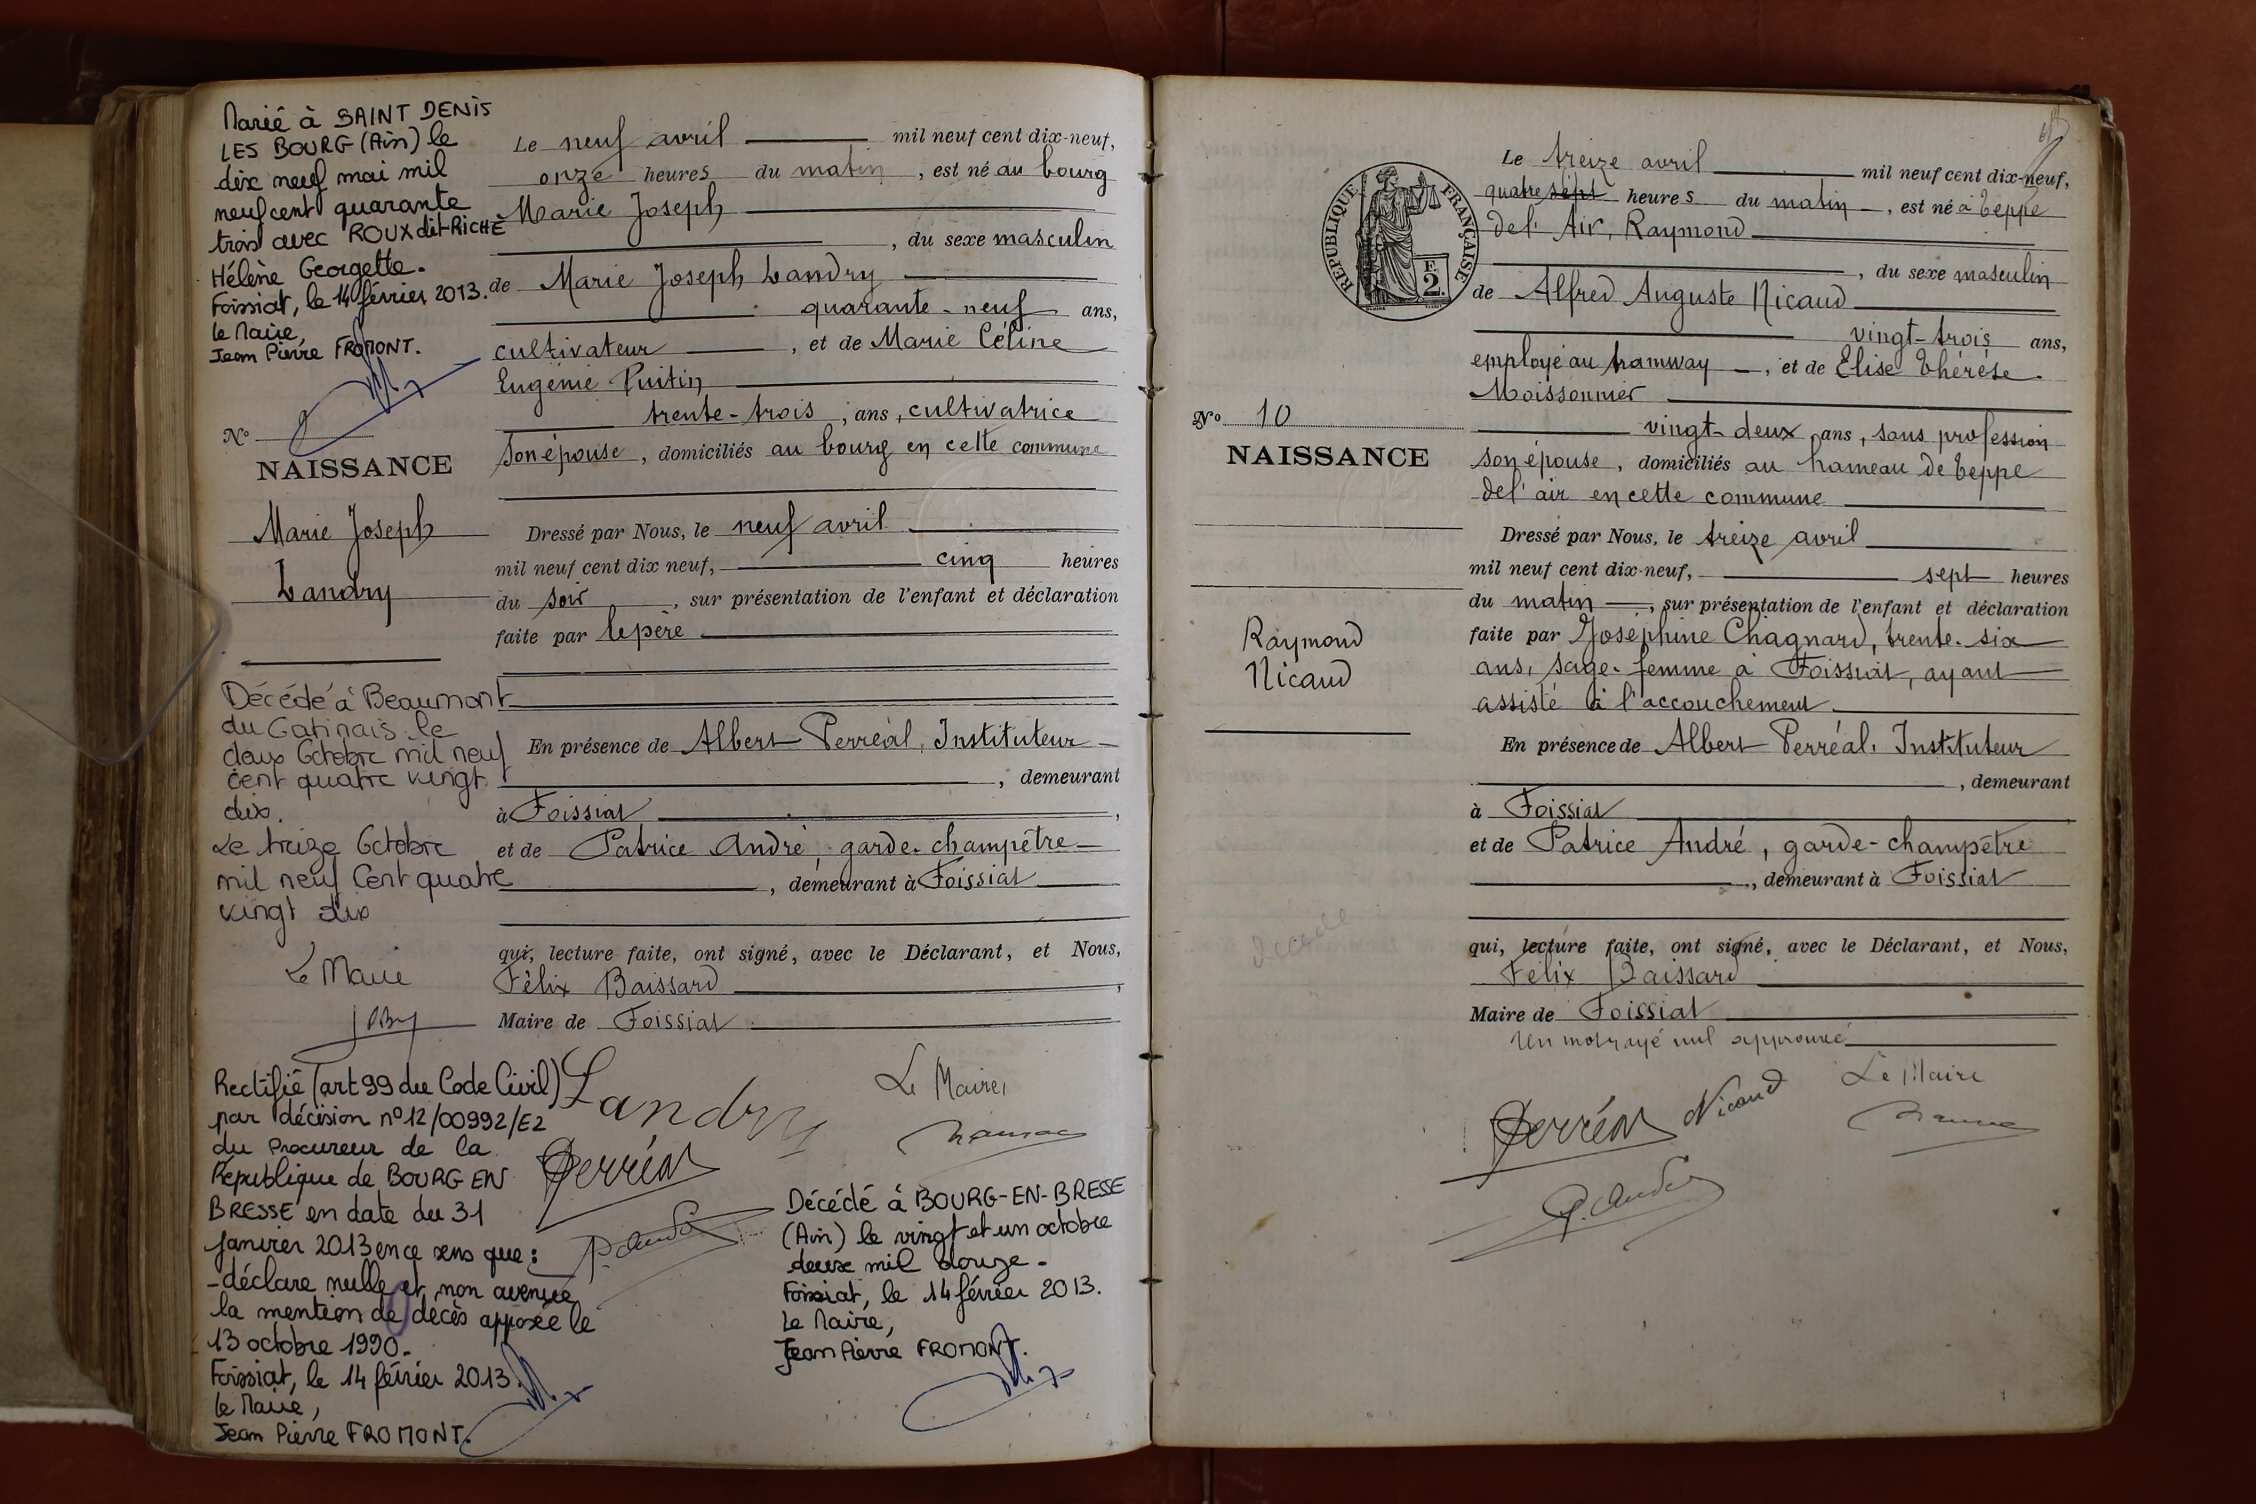 Marié à SAINT DENIS
LES BOURG (Ain) le
dix neuf mai mil
neuf cent quarante
trois avec ROUX dit RICHE
Hélène Georgette.
Foissiat, le 14 février 2013.
le Maire,
Jean Pierre FROMONT.
N° 9
NAISSANCE
Marie Joseph
Landry
Décédé à Beaumont
du Gatinais le
deux Octobre mil neuf
cent quatre vingt
dix.
Le treize Octobre
mil neuf Cent quatre
vingt dix
Le Maire
Rectifié (art 99 du Code Civil)
par décision n° 12/00992/E2
du Procureur de la
République de BOURG EN
BRESSE en date du 31
janvier 2013 en ce sens que :
- déclare nulle et non avenue
la mention de décès apposée le
13 octobre 1990.
Foissiat, le 14 février 2013.
le Maire,
Jean Pierre FROMONT.
Le neuf avril mil neuf cent dix-neuf,
onze heures du matin, est né au bourg
Marie Joseph
, du sexe masculin
de Marie Joseph Landry
quarante-neuf ans,
cultivateur, et de Marie Céline
Eugénie Puitin
trente-trois, ans, cultivatrice
son épouse, domiciliés au bourg en cette commune
Dressé par Nous, le neuf avril
mil neuf cent dix neuf, cinq heures
du soir, sur présentation de l'enfant et déclaration
faite par le père
En présence de Albert Perréal, Instituteur
, demeurant
à Foissiat,
et de Patrice André, garde-champêtre
, demeurant à Foissiat
qui, lecture faite, ont signé, avec le Déclarant, et Nous,
Félix Baissard,
Maire de Foissiat
Landry
Le Maire,
Perréal
P. André
Décédé à BOURG-EN-BRESSE
(Ain) le vingt et un octobre
deux mil douze.
Foissiat, le 14 février 2013.
Le Maire,
Jean Pierre FROMONT.
RÉPUBLIQUE FRANÇAISE
F. 2
N° 10
NAISSANCE
Raymond
Nicaud
Le treize avril mil neuf cent dix-neuf,
quatre sept heures du matin, est né à Teppe
de l'Air, Raymond
, du sexe masculin
de Alfred Auguste Nicaud
vingt-trois ans,
employé au tramway, et de Elise Thérèse
Moissonnier
vingt-deux ans, sans profession
son épouse, domiciliés au hameau de Teppe
de l'air en cette commune
Dressé par Nous, le treize avril
mil neuf cent dix-neuf, sept heures
du matin, sur présentation de l'enfant et déclaration
faite par Joséphine Chagnard, trente-six
ans, sage-femme à Foissiat, ayant
assisté à l'accouchement
En présence de Albert Perréal, Instituteur
, demeurant
à Foissiat
et de Patrice André, garde-champêtre
, demeurant à Foissiat
qui, lecture faite, ont signé, avec le Déclarant, et Nous,
Félix Baissard
Maire de Foissiat
Un mot rayé nul approuvé
Le Maire
Perréal
Nicaud
P. André